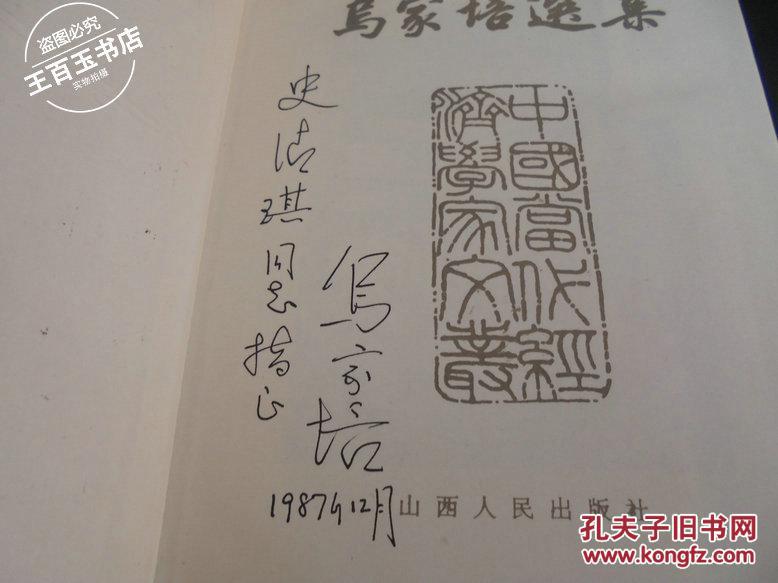 乌家培選集
中國當代經
濟學家文叢
史清琪
同志
指正
乌家培
1987年12月
山西人民出版社
盗图必究
王百玉书店
实物拍摄
孔夫子旧书网
www.kongfz.com